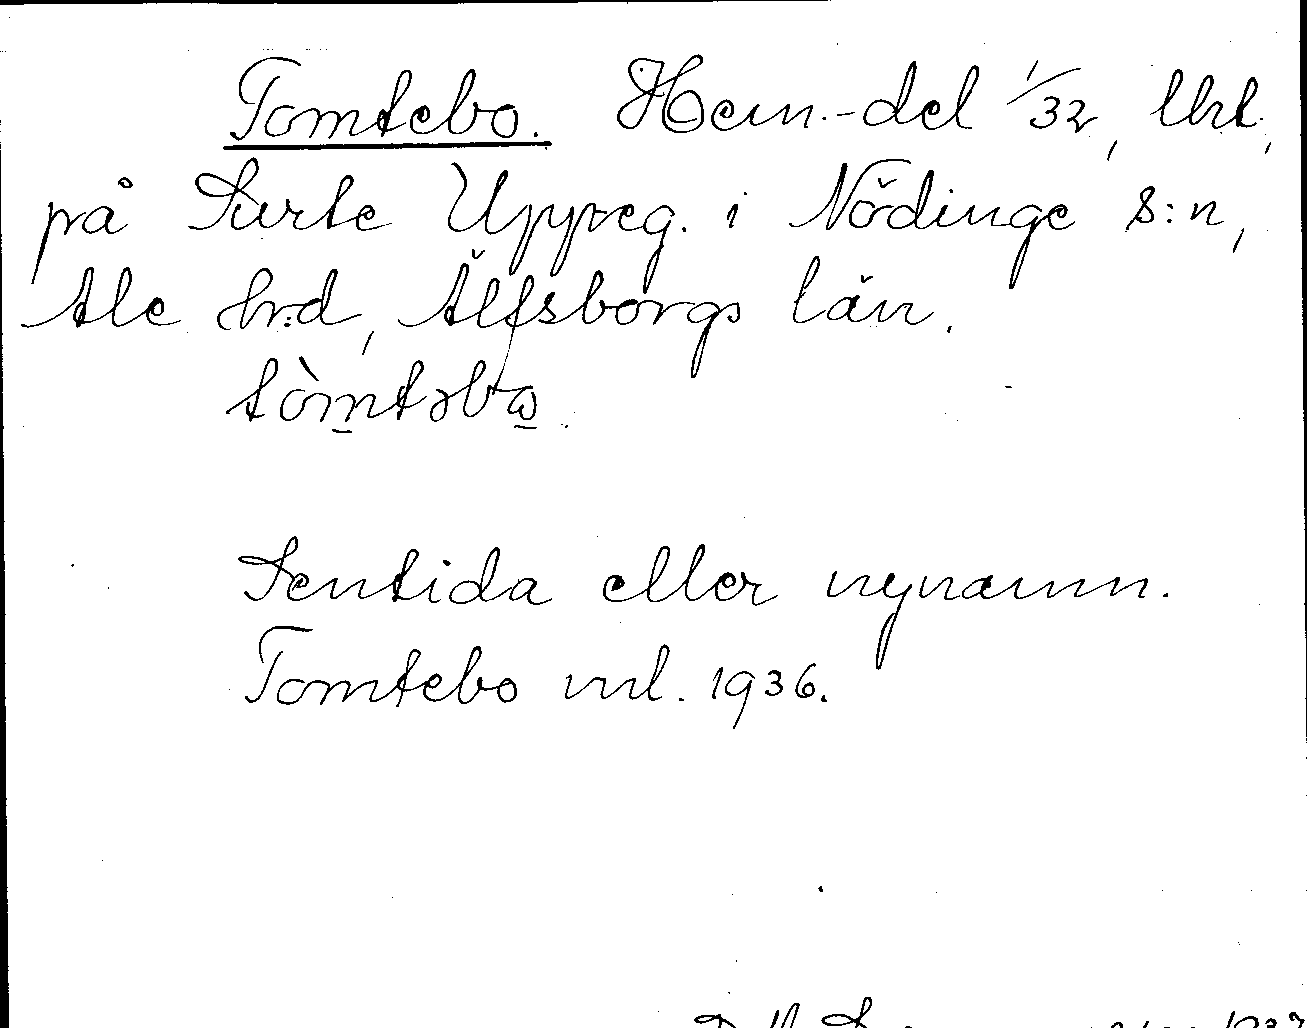 Tomtebo. Hem.-del 1/32, lht,
på Surte Uppreg. i Nödinge s:n,
Ale hrd, Älfsborgs län.
tòm̲təbω̲.
Sentida eller nynamn.
Tomtebo vnl. 1936.